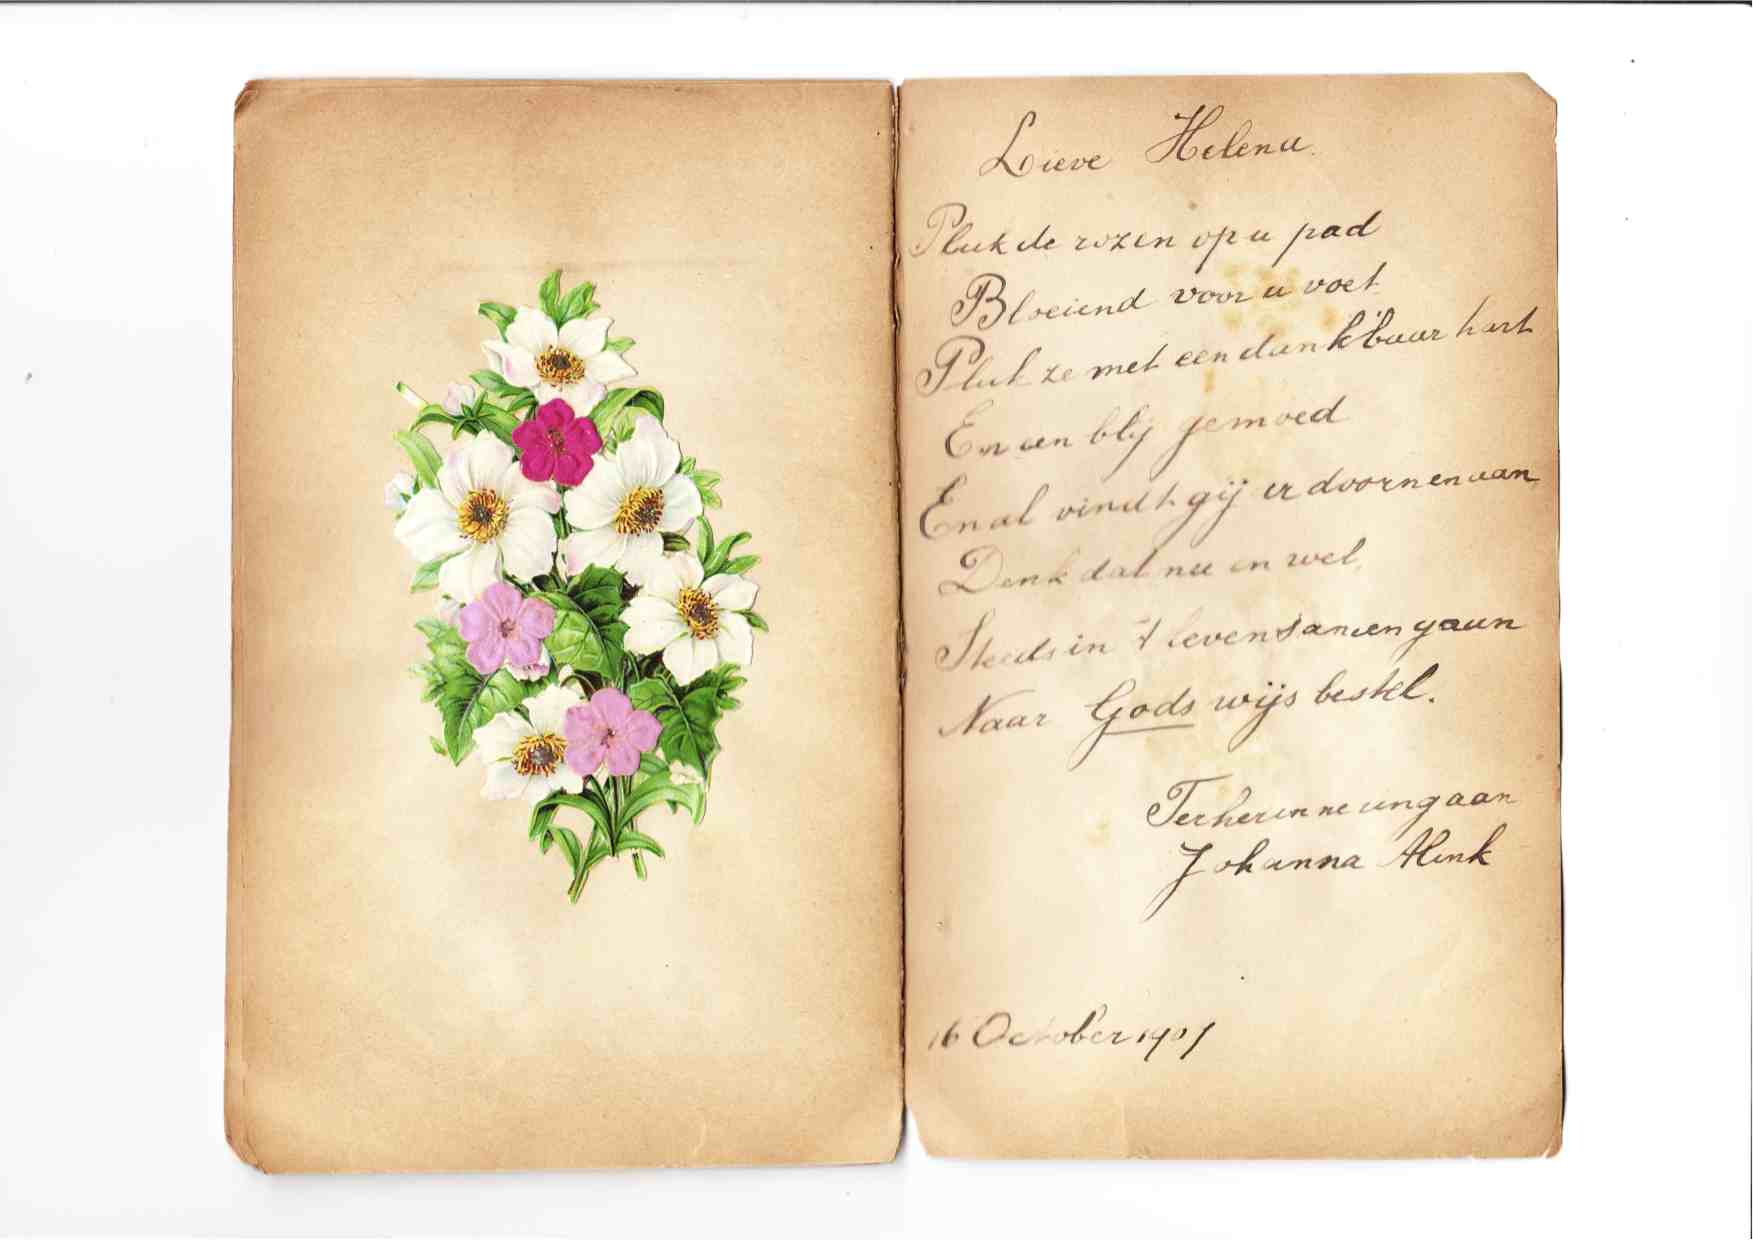 Lieve Helena.
Pluk de rozen op u pad
Bloeiend voor u voet
Pluk ze met een dankbaar hart
En een blij gemoed
En al vindt gij er doornen aan,
Denk dat nu en wel,
Steeds in 't leven samen gaan
Naar Gods wijs bestel.
Ter herinnering aan
Johanna Alink
16 October 1907